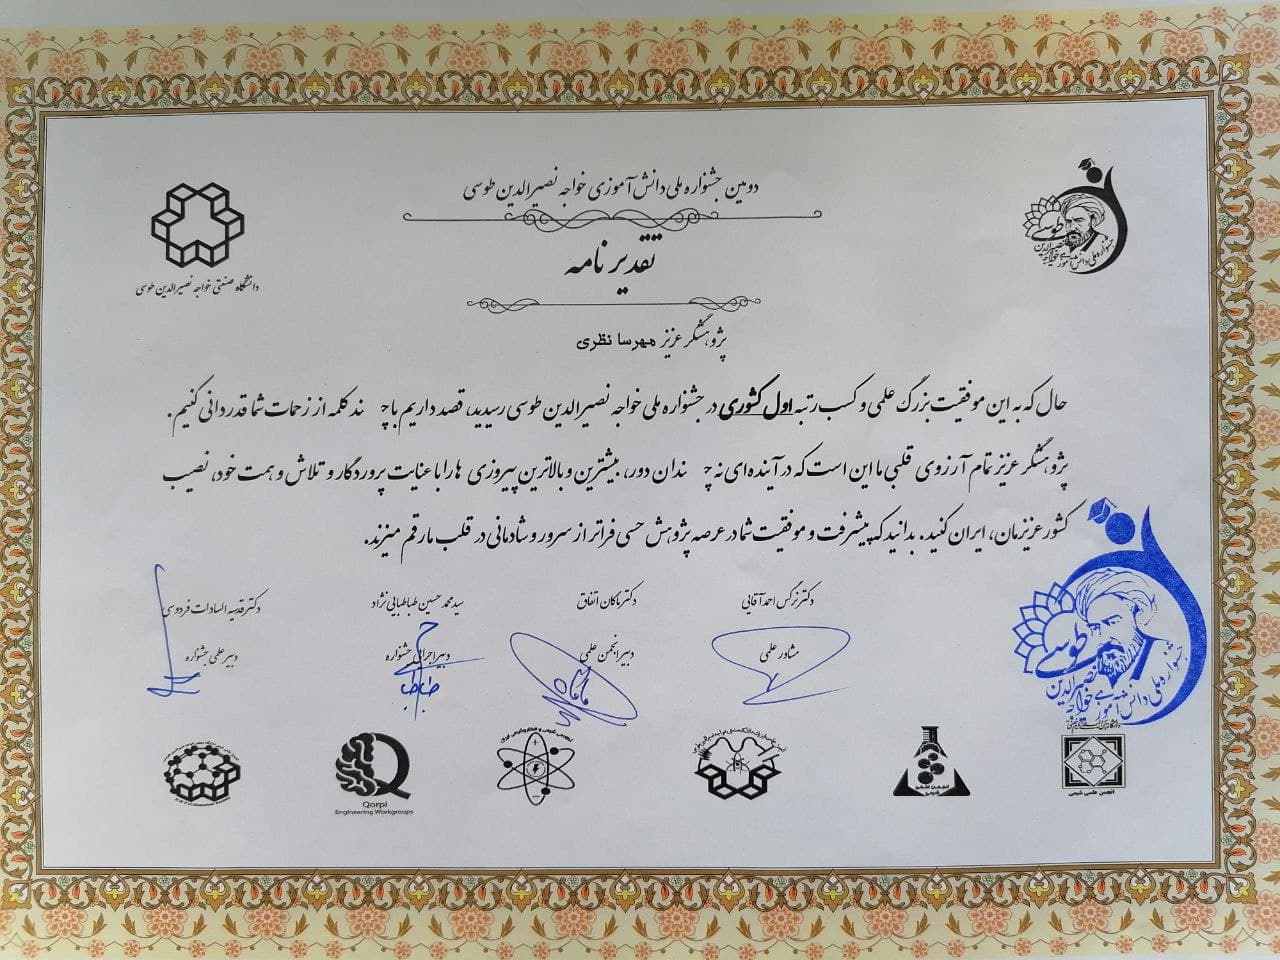 دومین جشنواره ملی دانش آموزی خواجه نصیرالدین طوسی
تقدیرنامه
دانشگاه صنعتی خواجه نصیرالدین طوسی
جشنواره ملی دانش آموزی خواجه نصیرالدین طوسی
پژوهشگر عزیز مهرسا نظری
حال که به این موفقیت بزرگ علمی و کسب رتبه اول کشوری در جشنواره ملی خواجه نصیرالدین طوسی رسیدید، قصد داریم با چند کلمه از زحمات شما قدردانی کنیم.
پژوهشگر عزیز تمام آرزوی قلبی ما این است که در آینده‌ای نه چندان دور، بیشترین و بالاترین پیروزی ها را با عنایت پروردگار و تلاش و همت خود، نصیب
کشور عزیزمان، ایران کنید. بدانید که پیشرفت و موفقیت شما در عرصه پژوهش حسی فراتر از سرور و شادمانی در قلب ما رقم میزند.
دکتر نرگس احمدآقایی
مشاور علمی
دکتر ماکان اتفاق
دبیر انجمن علمی
سید محمد حسین طباطبایی نژاد
دبیر اجرایی جشنواره
دکتر قدسیه السادات فردوسی
دبیر علمی جشنواره
جشنواره ملی دانش آموزی خواجه نصیرالدین طوسی
انجمن علمی شیمی
انجمن علمی شیمی
Qorpi
Engineering Workgroups